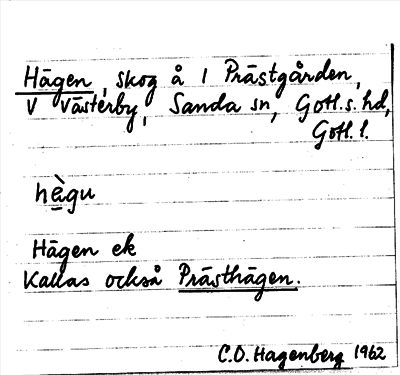 Hägen, skog å 1 Prästgården,
V Västerby, Sanda sn, Gotl.s.hd,
Gotl. l.
hègu
Hägen ek
Kallas också Prästhägen.
C.O. Hagenberg 1962